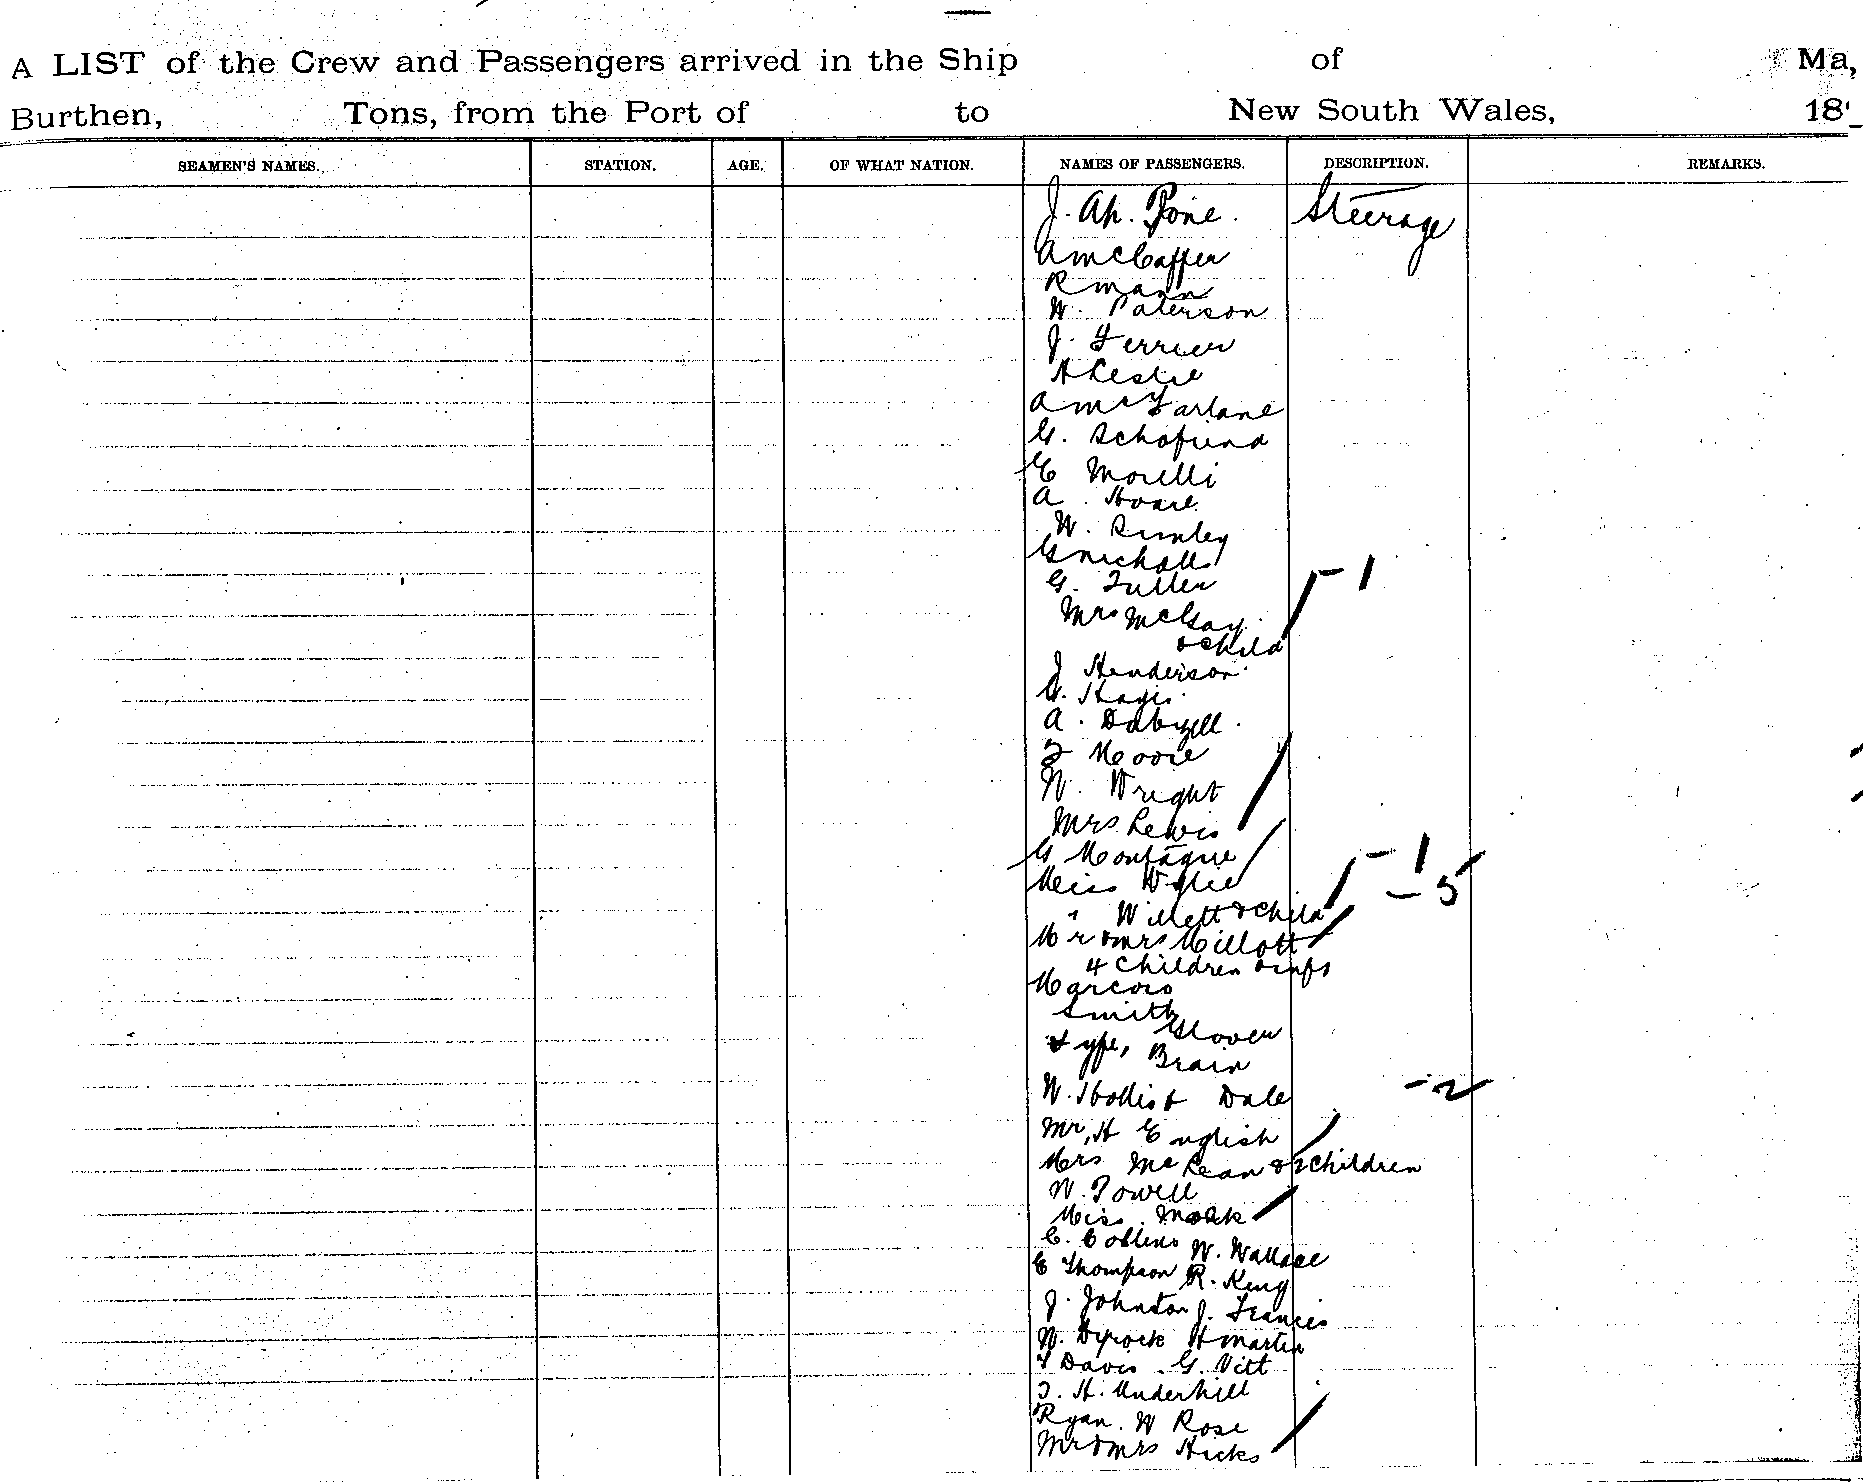 A LIST of the Crew and Passengers arrived in the Ship of Ma,
Burthen, Tons, from the Port of to New South Wales, 18
SEAMEN'S NAMES. STATION. AGE. OF WHAT NATION. NAMES OF PASSENGERS. DESCRIPTION. REMARKS.
J. Ah. Steerage
A McCaffer
R Mann
W. Paterson
J. Ferrier
A Leslie
A McFarlane
G.
E Morelli
A. Hoare
W.
G Nicholls
G. Fuller
Mrs McGay - 1
& Child
J Henderson
G.
A. Dalzell
F Moore
W. Wright
Mrs Lewis
G Montague - 1
Miss Wylie - 5
" Willett & Child
Mr & Mrs Millott
4 Children & infs
Marcois
Smith
Glover
Type, Brain
W. Hollist Dale - 2
Mr, H English
Mrs McLean & 2 Children
W. Powell
Miss Mack
C. Collins W. Wallace
E Thompson R. King
J. Johnston J. Francis
W. H Martin
T Davis. G. Vitt
T. H. Underhill
Ryan. W Rose
Mr & Mrs Hicks